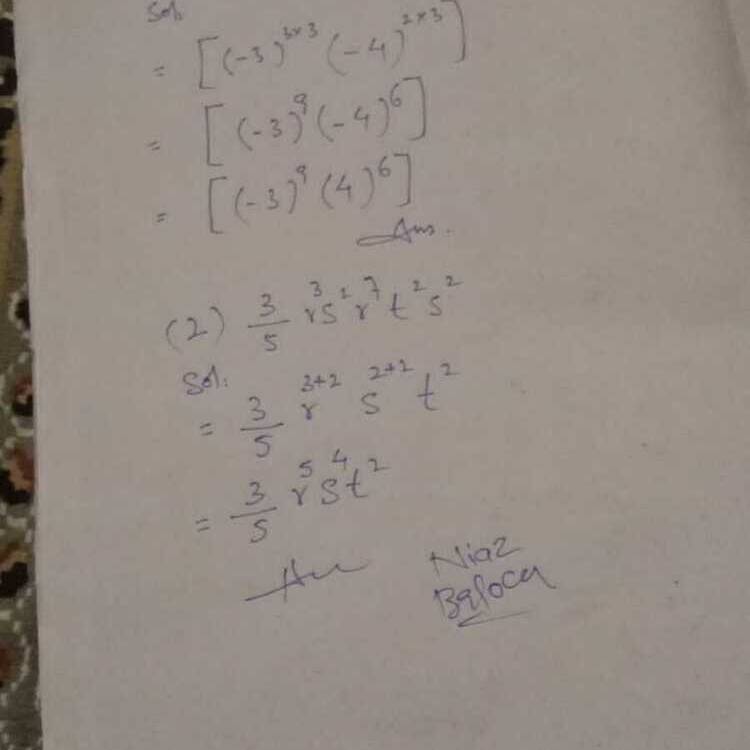 Sol:
= [(-3)^{3×3} (-4)^{2×3}]
= [(-3)^9 (-4)^6]
= [(-3)^9 (4)^6]
Ans.
(2) 3/5 r^3 s^2 r^7 t^2 s^2
Sol:
= 3/5 r^{3+2} s^{2+2} t^2
= 3/5 r^5 s^4 t^2
Ans
Niaz
Baloch